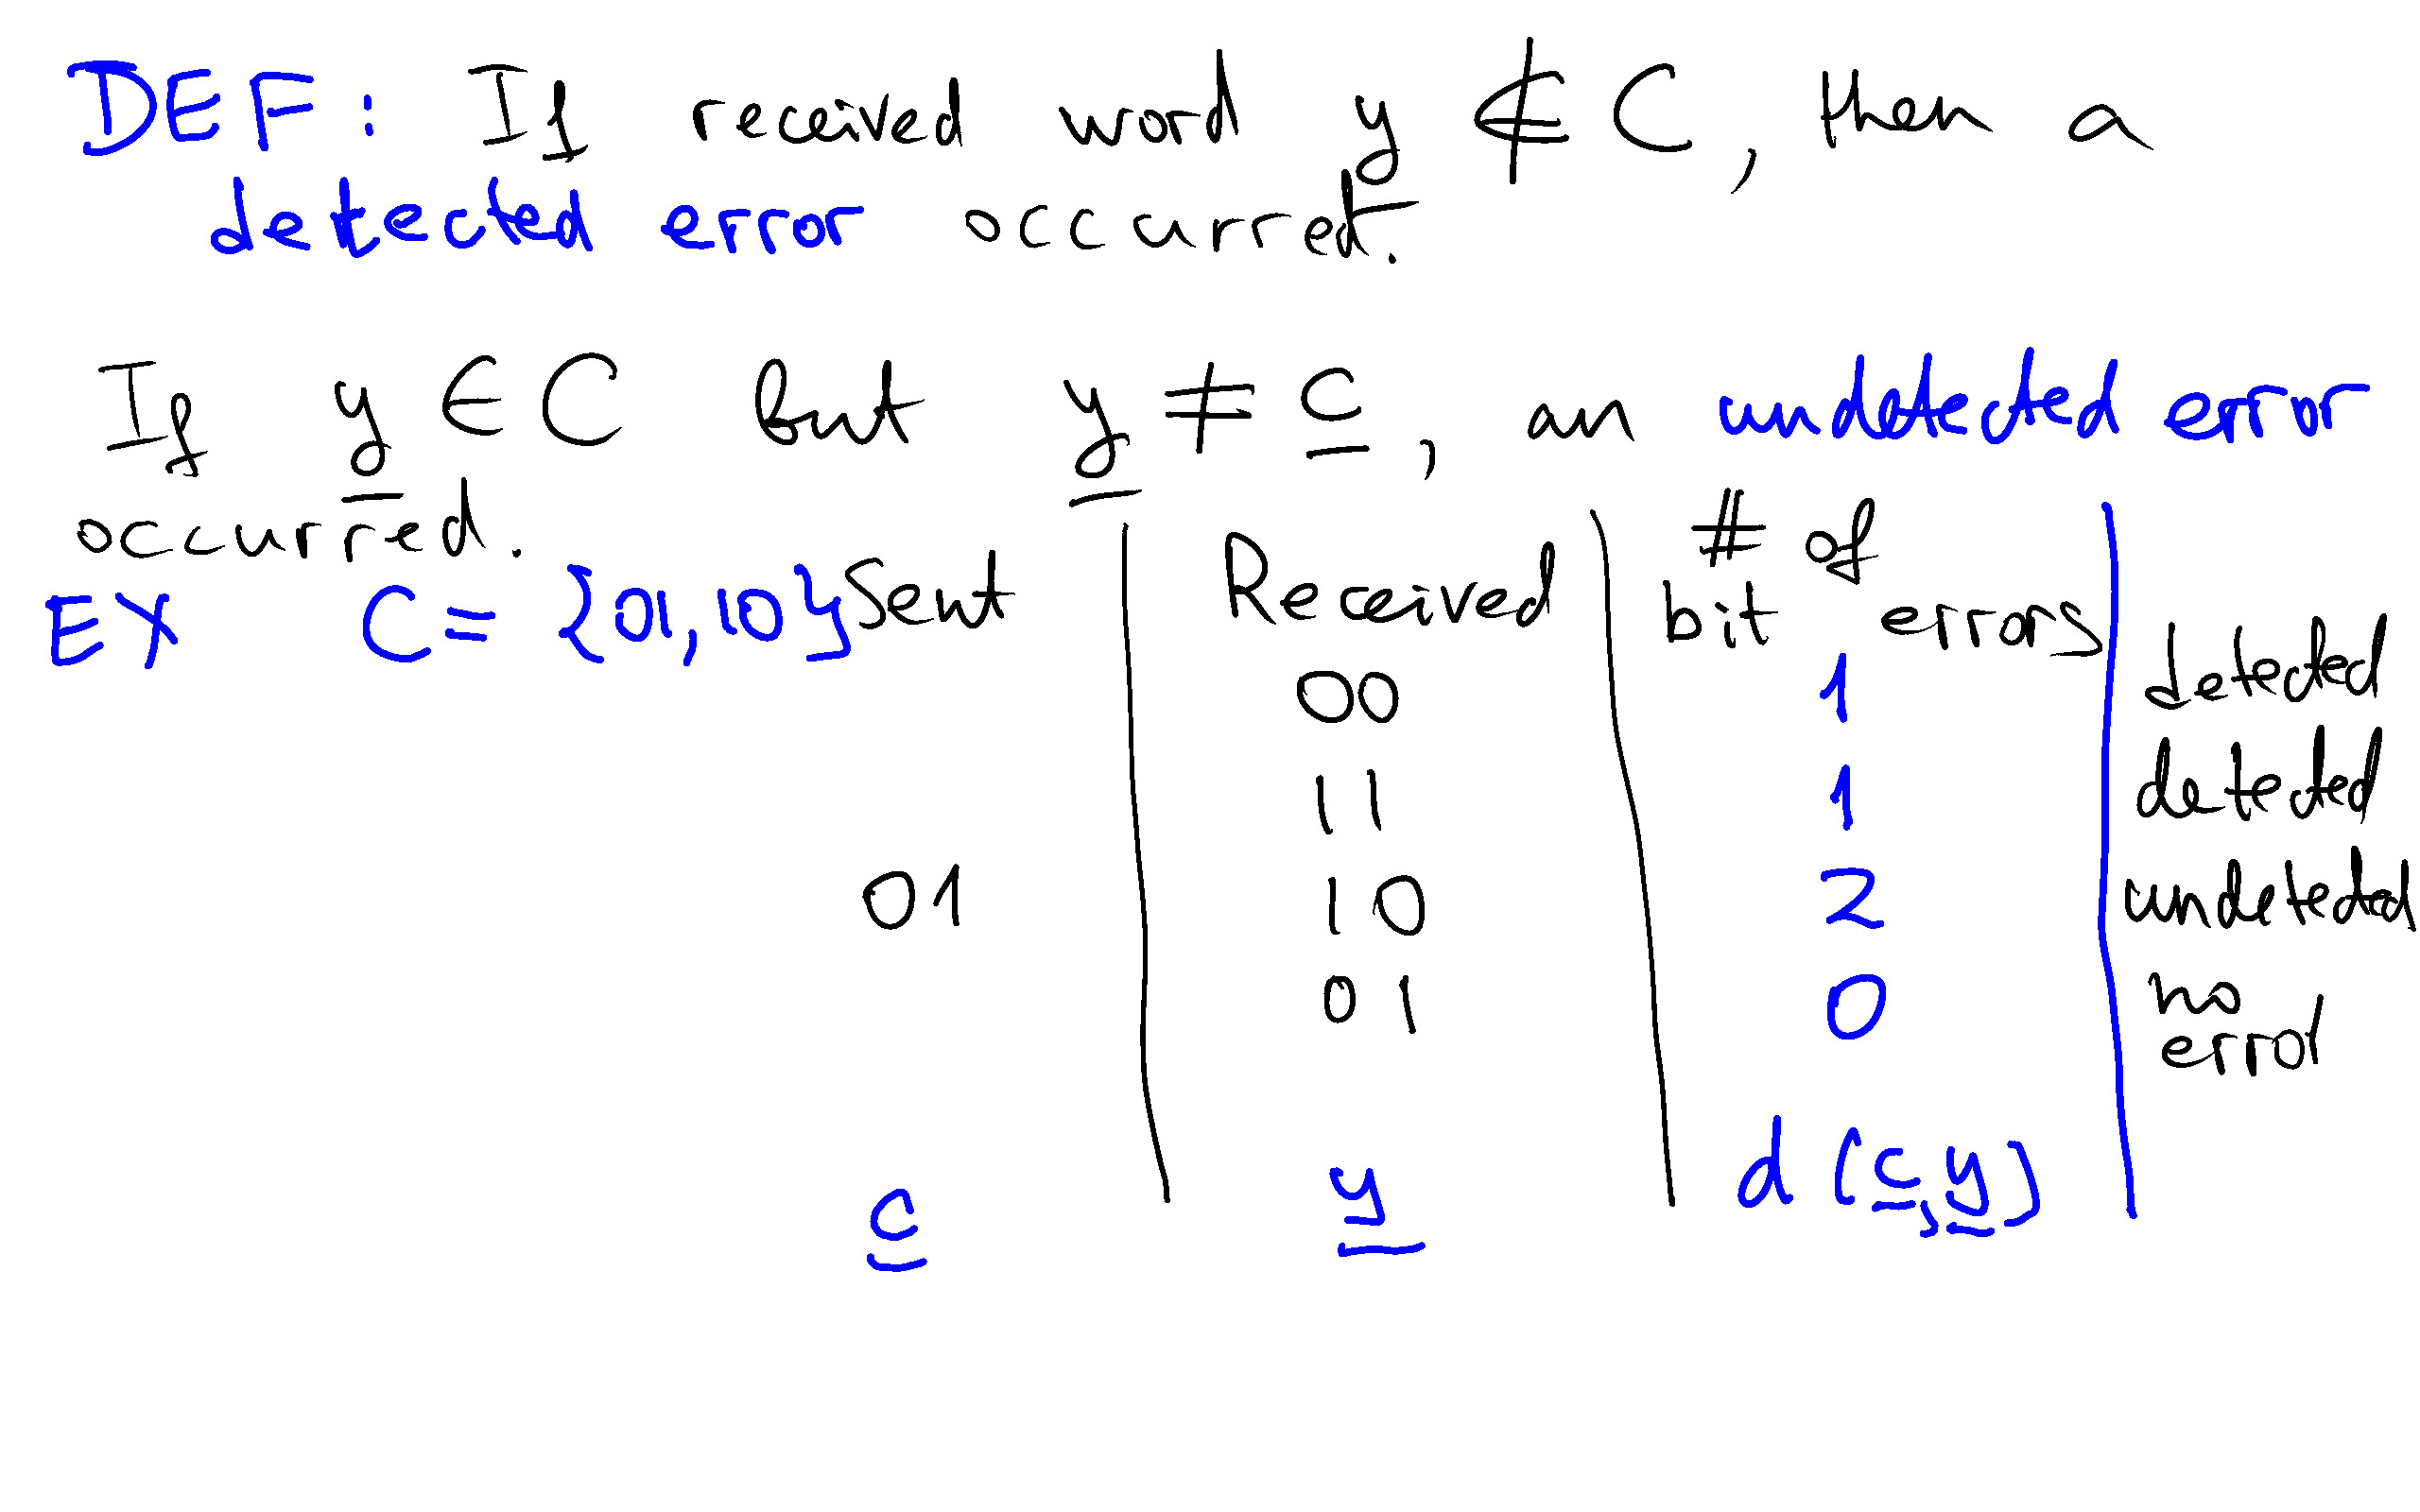 DEF: If received word y ∉ C, then a
detected error occurred.
If y ∈ C but y ≠ c, an undetected error
occurred.
EX C = {01, 10} Sent | Received | # of bit errors |
00 | 1 | detected
11 | 1 | detected
01 | 10 | 2 | undetected
01 | 0 | no error
c | y | d(c,y)